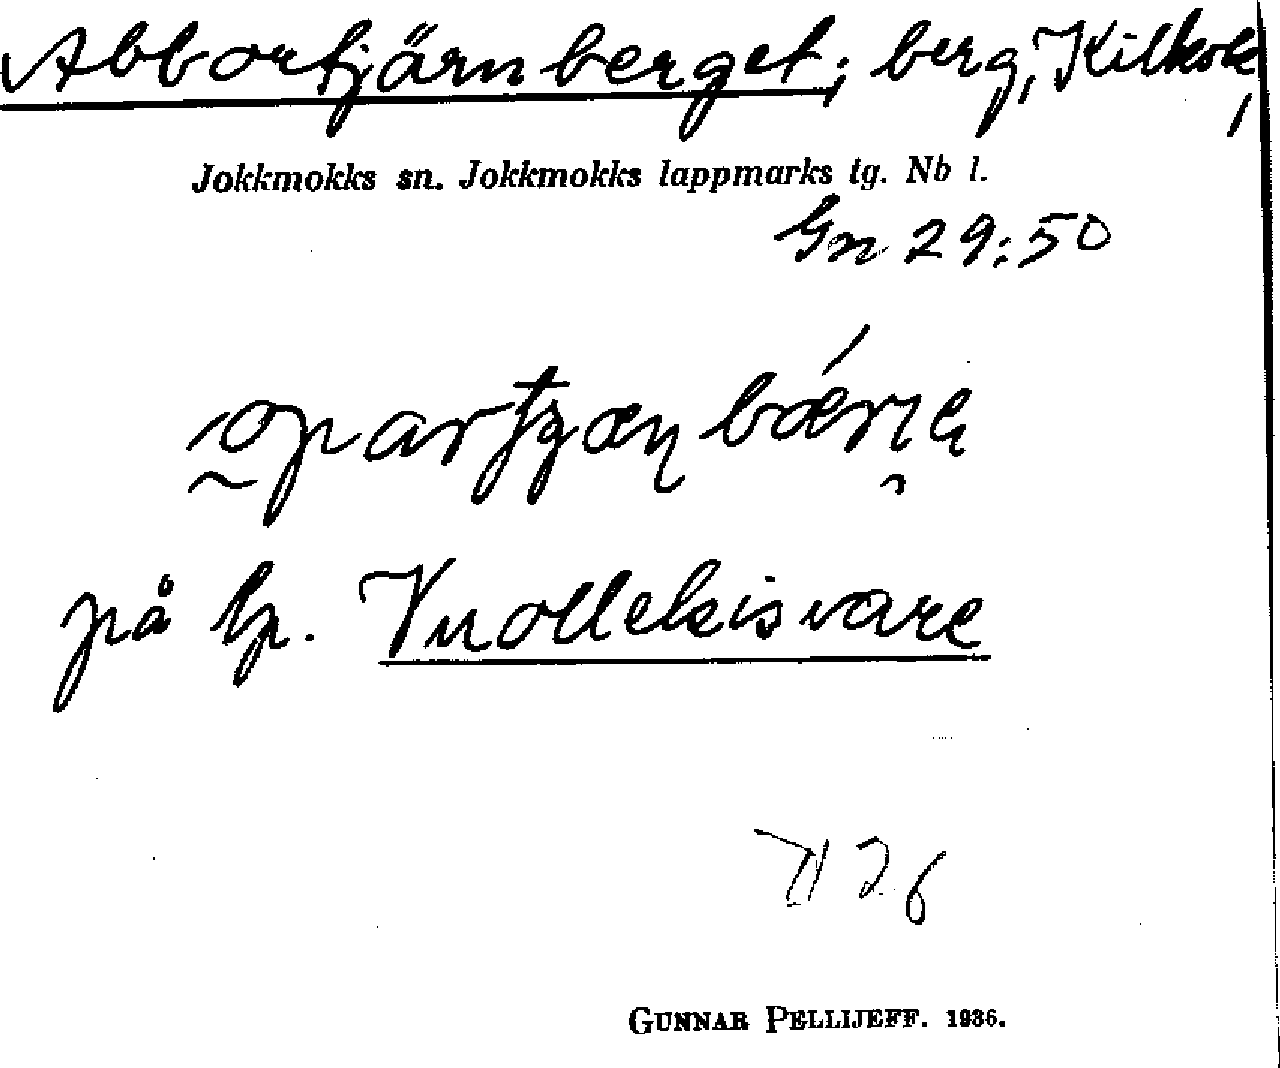 Abbortjärnberget; berg, Kilkok,
Jokkmokks sn. Jokkmokks lappmarks tg. Nb l.
Gn 29:50
på lp. Vuollekisvare
II 26
GUNNAR PELLIJEFF. 1936.